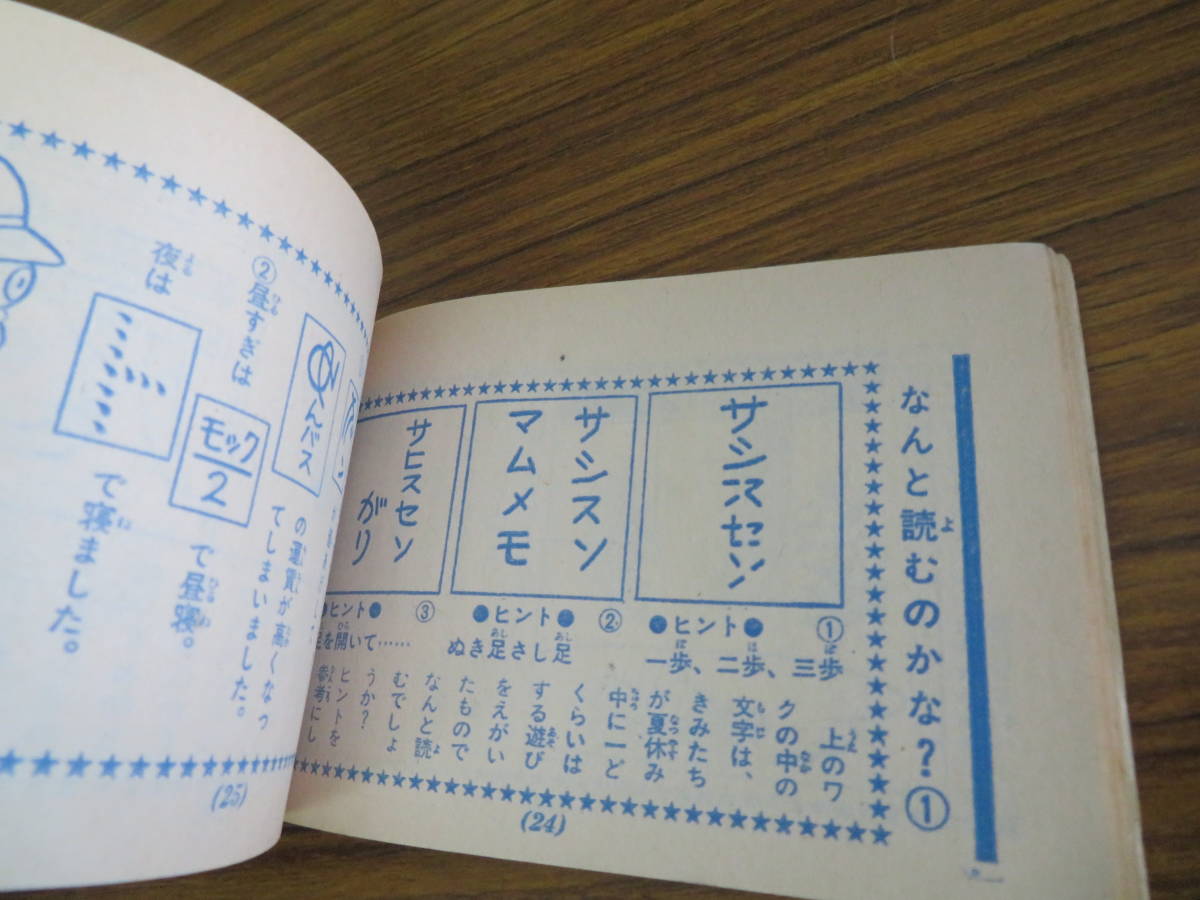 なんと読むのかな？①
よ
サシスセソ
①
●ヒント●
一歩、二歩、三歩
ぽ
ほ
ぽ
サシスソ
マムメモ
②
●ヒント●
ぬき足さし足
あし
あし
サヒスセソ
がり
③
●ヒント●
を開いて……
ひら
上のワ
うえ
クの中の
なか
文字は、
もじ
きみたち
が夏休み
なつやす
中に一ど
くらいは
する遊び
あそ
をえがい
たもので
なんと読
よ
むでしょ
うか？
ヒントを
参考にし
(24)
んバス
の運賃が高くなっ
てしまいました。
②昼すぎは
ひる
モック
2
で昼寝。
ひるね
夜は
よる
で寝ました。
(25)